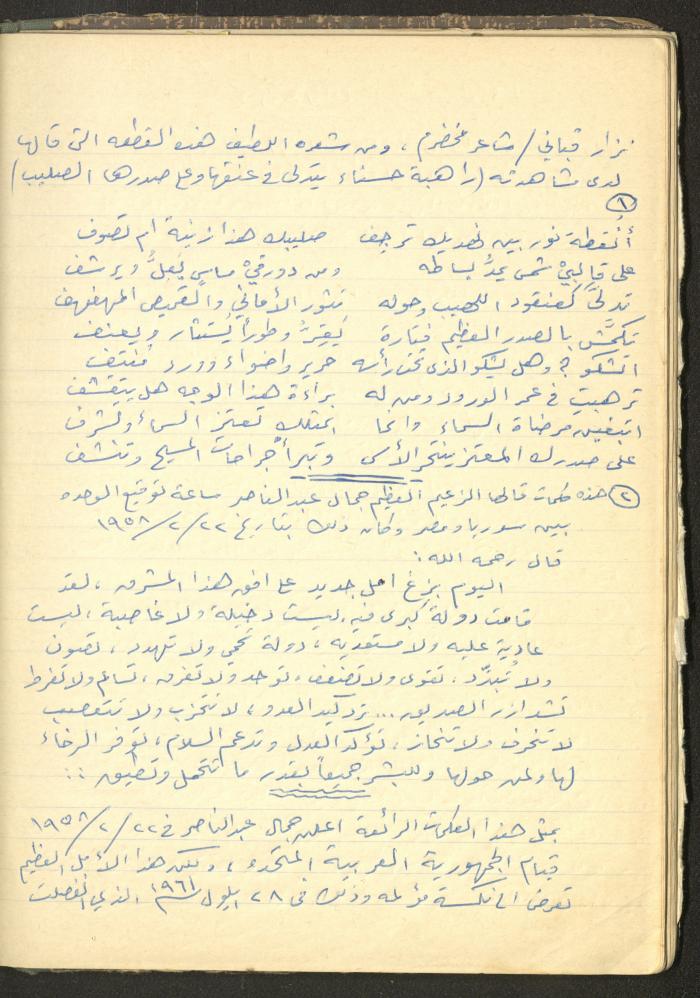 نزار قباني / شاعر مخضرم ، ومن شعره اللطيف هذه القطعه التي قالها
لدى مشاهدته (راهبة حسناء يتدلى في عنقها وعلى صدرها الصليب)
١
أنقطة نور بين نهديك ترجف صليبك هذا زينة ام تصوف
على قالبيْ شمع يمدُّ بساطه ومن دورقيْ ماسٍ يَعُلُّ ويرشف
تدلىَّ كعنقود اللهيب وحوله تثور الأماني والقميص المهفهف
تكمَّش بالصدر العظيم فتارة يَقِرُّ وطوراً يُستثار ويعنف
اتشكو؟ وهل يشكو الذي تحت رأسه حرير واضواء وورد مُنتف
ترهبتِ في عمر الورود ومن له براءة هذا الوجه هل يتقشف
اتبغين مرضاة السماء وانما بمثلك تعتز السماء وتشرف
على صدرك المعتز ينتحر الأسى وتبرأ جراحات المسيح وتنشف
٢ هذه كلمات قالها الزعيم العظيم جمال عبد الناصر ساعة توقيع الوحده
بين سوريا ومصر وكان ذلك بتاريخ ٢٢/٢/١٩٥٨
قال رحمه الله :
اليوم بزغ امل جديد على افق هذا المشرق ، لقد
قامت دولة كبرى فيه ليست دخيلة ولا غاصبة ، ليست
عادية عليه ولا مستعديه ، دولة تحمي ولا تهدد ، تصون
ولا تُبدّد ، تقوى ولا تضعف ، توحد ولا تفرق ، تسالم ولا تفرط
تشد ازر الصديق ... ترد كيد العدو ، لا تتحزب ولا تتعصب
لا تنحرف ولا تنحاز ، تؤكد العدل وتدعم السلام ، توفر الرخاء
لها ولمن حولها وللبشر جميعاً بقدر ما تتحمل وتطيق ::
بمثل هذه الكلمات الرائعة اعلن جمال عبد الناصر في ٢٢/٢/١٩٥٨
قيام الجمهورية العربية المتحدة ، ولكن هذا الأمل العظيم
تعرض الى نكسة مؤلمه وذلك في ٢٨ ايلول سنة ١٩٦١ الذي انفصلت